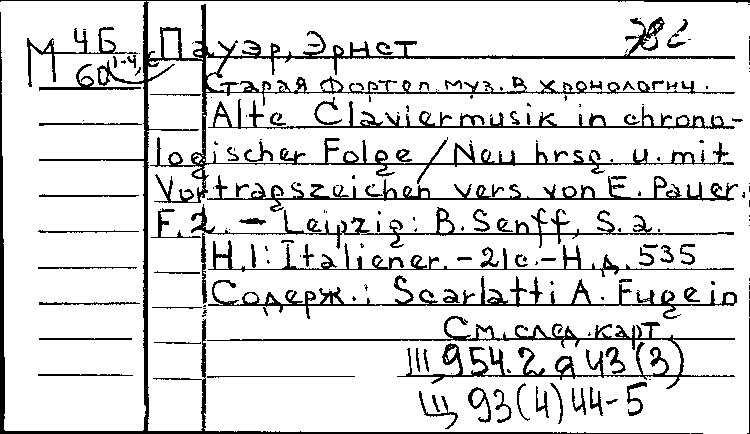 М 4Б Пауэр, Эрнст
60 1-4,
Старая фортеп. муз. в хронологич.
Alte Claviermusik in chrono-
logischer Folge / Neu hrsg. u. mit
Vortragszeichen vers. von E. Pauer.
F. 2. - Leipzig: B. Senff, S. a.
H. 1: Italiener. - 21c. - Н. д. 535
Содерж.: Scarlatti A. Fuge in
См. след. карт.
Щ 954.2 я 43 (3)
Щ 93(4)44-5